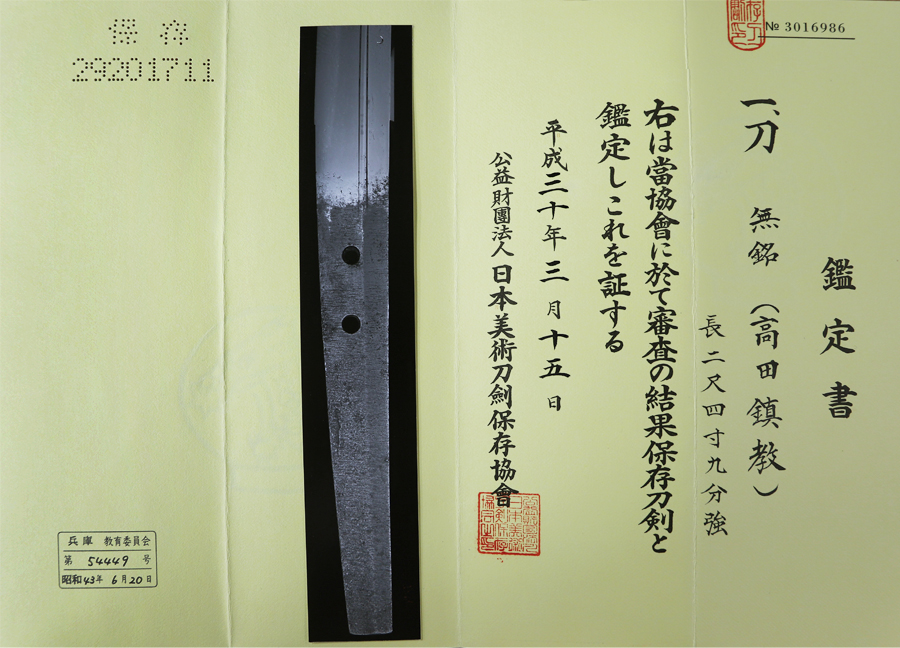 № 3016986
鑑定書
一、刀 無銘（高田鎮教）
長二尺四寸九分強
右は當協會に於て審査の結果保存刀剣と
鑑定しこれを証する
平成三十年三月十五日
公益財團法人 日本美術刀劍保存協會
保存
29201711
兵庫 教育委員会
第 54449 号
昭和43年 6月20日